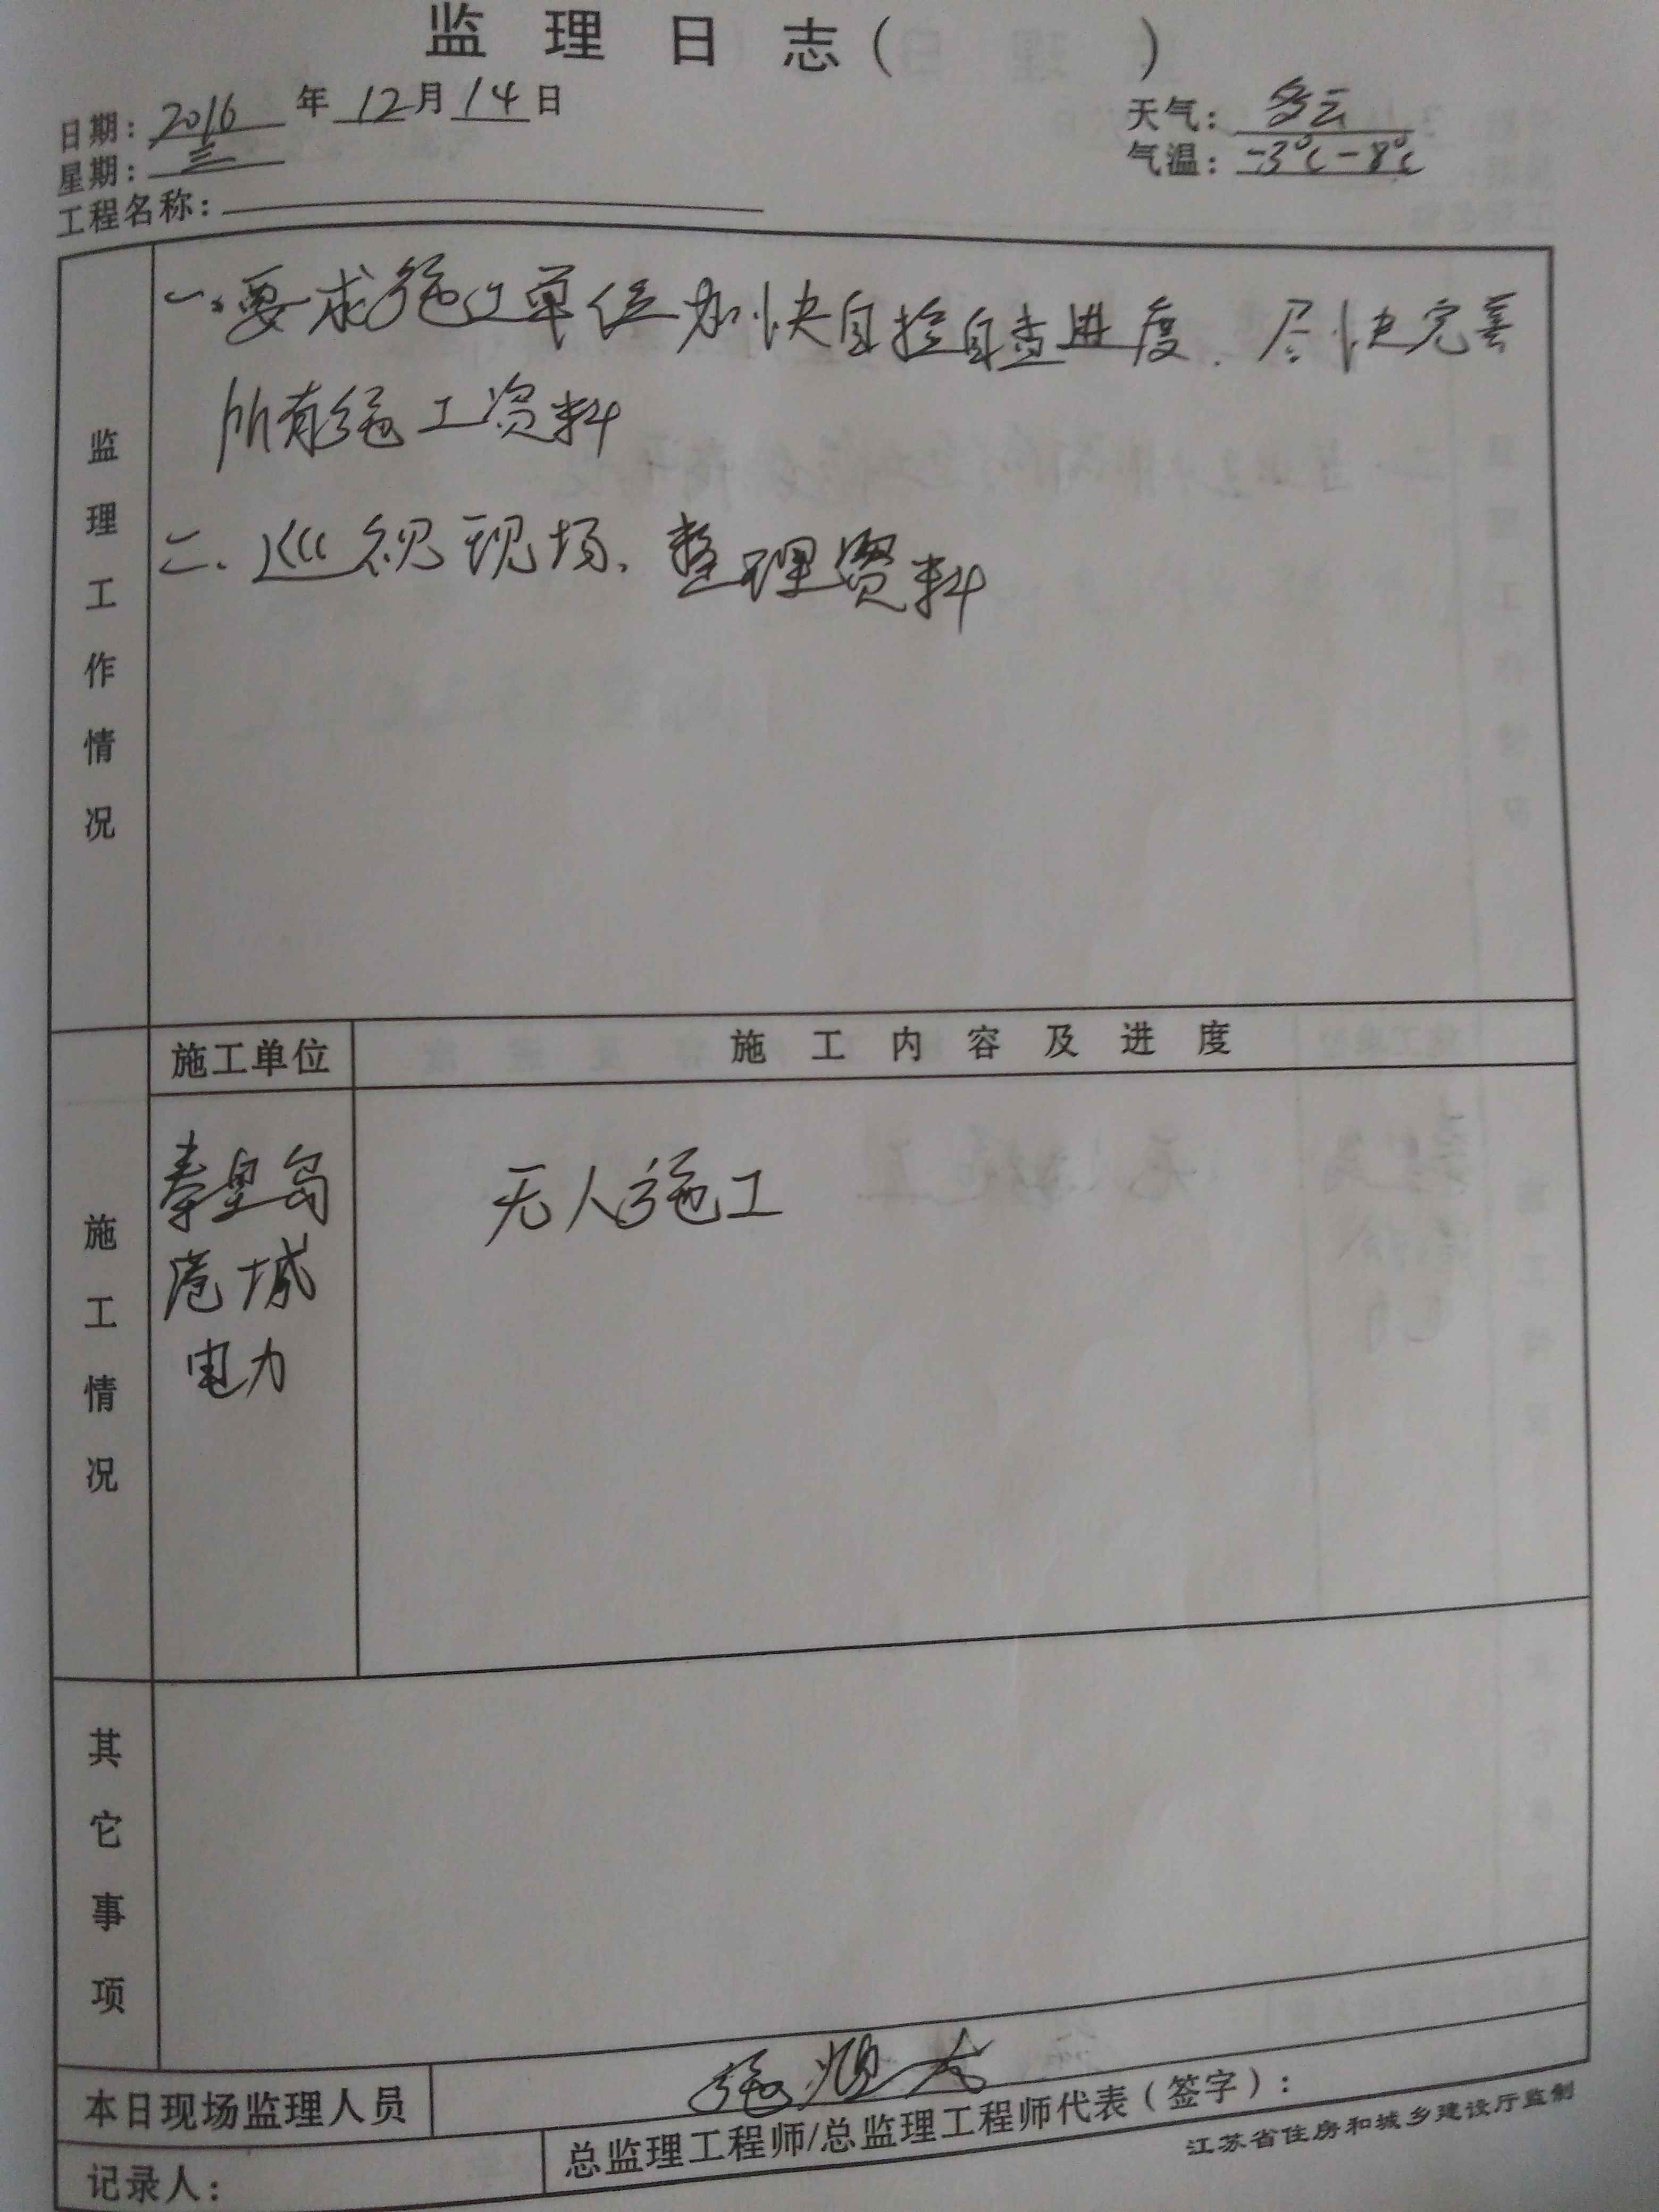 监理日志( )
日期：2016年12月14日
天气：多云
星期：三
气温：-3℃-8℃
工程名称：
监理工作情况
一、要求施工单位加快自检自查进度、尽快完善
所有施工资料
二、巡视现场、整理资料
施工单位
施工内容及进度
施工情况
秦皇岛
港城
电力
无人施工
其它事项
本日现场监理人员
施顺
记录人：
总监理工程师/总监理工程师代表（签字）：
江苏省住房和城乡建设厅监制